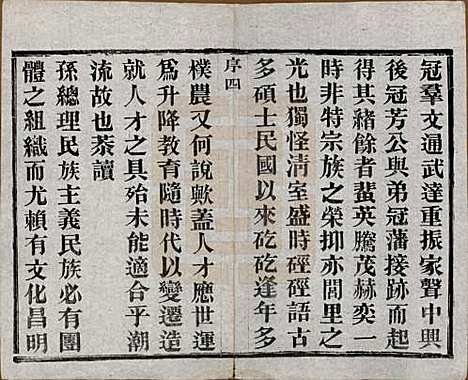 冠羣文通武達重振家聲中興
後冠芳公與弟冠藩接跡而起
得其緒餘者蜚英騰茂赫奕一
時非特宗族之榮抑亦閭里之
光也獨怪清室盛時硜硜語古
多碩士民國以來矻矻逢年多
序四
樸農又何說歟蓋人才應世運
爲升降敎育隨時代以變遷造
就人才之具殆未能適合乎潮
流故也恭讀
孫總理民族主義民族必有團
體之組織而尤賴有文化昌明